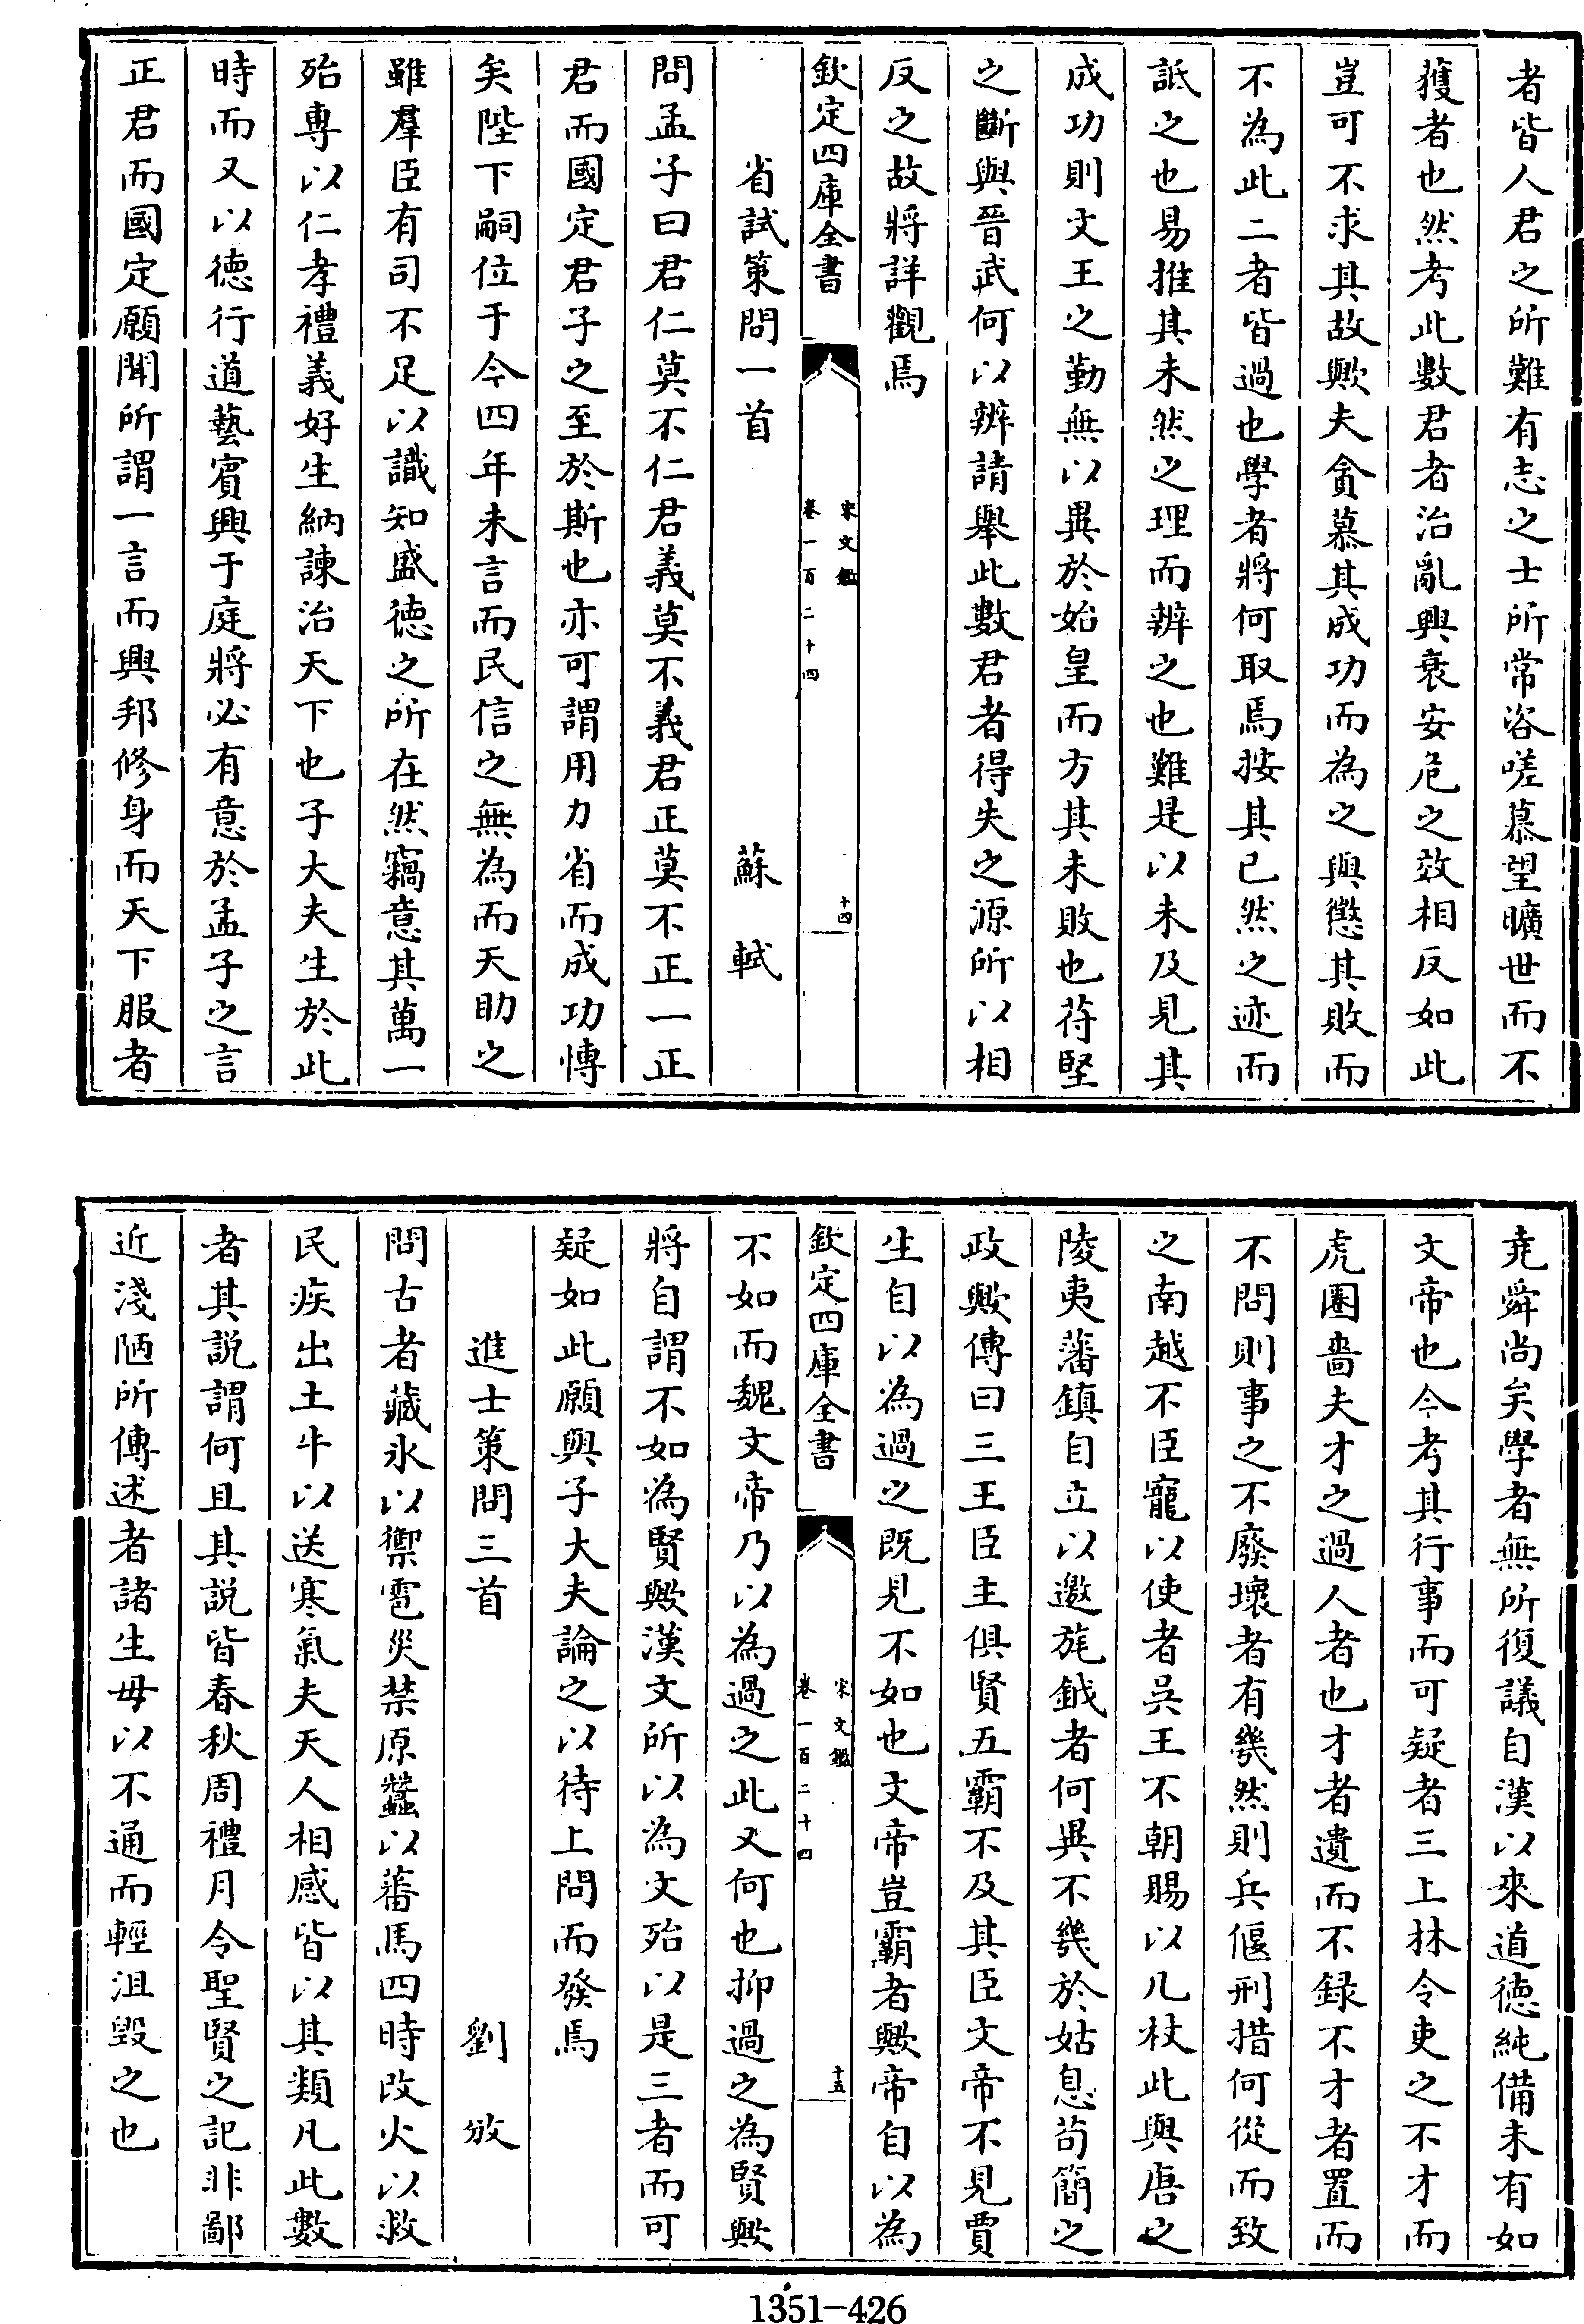 者皆人君之所難有志之士所常咨嗟慕望曠世而不
獲者也然考此數君者治亂興衰安危之效相反如此
豈可不求其故歟夫貪慕其成功而為之與懲其敗而
不為此二者皆過也學者將何取焉按其已然之迹而
詆之也易推其未然之理而辨之也難是以未及見其
成功則文王之勤無以異於始皇而方其未敗也苻堅
之斷與晉武何以辨請舉此數君者得失之源所以相
反之故將詳觀焉
欽定四庫全書
宋文鑑
卷一百二十四
十四
省試策問一首 蘇軾
問孟子曰君仁莫不仁君義莫不義君正莫不正一正
君而國定君子之至於斯也亦可謂用力省而成功愽
矣陛下嗣位于今四年未言而民信之無為而天助之
雖羣臣有司不足以識知盛徳之所在然竊意其萬一
殆專以仁孝禮義好生納諫治天下也子大夫生於此
時而又以徳行道藝賓興于庭將必有意於孟子之言
正君而國定願聞所謂一言而興邦修身而天下服者
堯舜尚矣學者無所復議自漢以來道徳純備未有如
文帝也今考其行事而可疑者三上林令吏之不才而
虎圈嗇夫才之過人者也才者遺而不録不才者置而
不問則事之不廢壞者有幾然則兵偃刑措何從而致
之南越不臣寵以使者吳王不朝賜以几杖此與唐之
陵夷藩鎮自立以邀旄鉞者何異不幾於姑息茍簡之
政歟傳曰三王臣主俱賢五霸不及其臣文帝不見賈
生自以為過之既見不如也文帝豈霸者歟帝自以為
欽定四庫全書
宋文鑑
卷一百二十四
十五
不如而魏文帝乃以為過之此又何也抑過之為賢歟
將自謂不如為賢歟漢文所以為文殆以是三者而可
疑如此願與子大夫論之以待上問而發焉
進士策問三首 劉攽
問古者藏氷以禦雹災禁原蠶以蕃馬四時改火以救
民疾出土牛以送寒氣夫天人相感皆以其類凡此數
者其説謂何且其説皆春秋周禮月令聖賢之記非鄙
近淺陋所傳述者諸生毋以不通而輕沮毀之也
1351-426